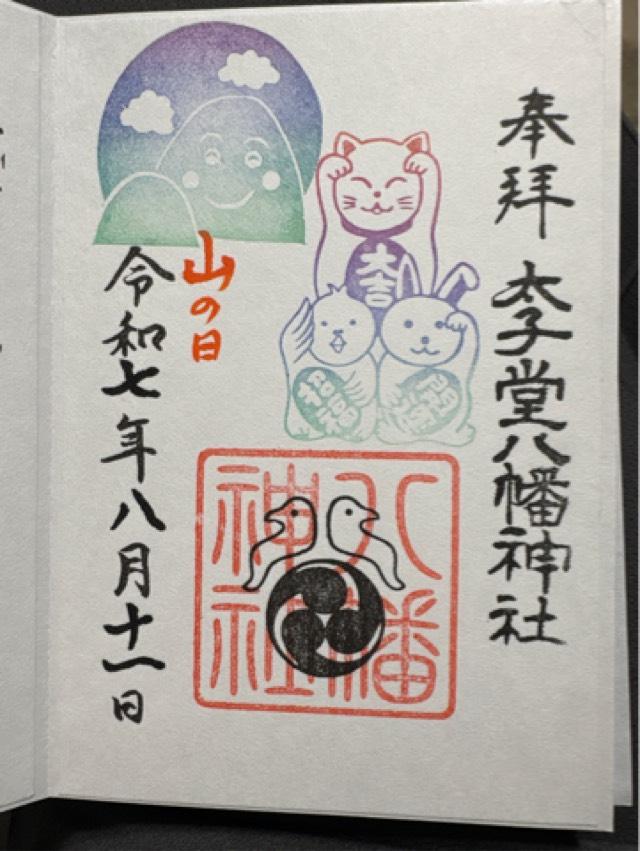 奉拝
太子堂八幡神社
大吉
八幡
神社
山の日
令和七年八月十一日